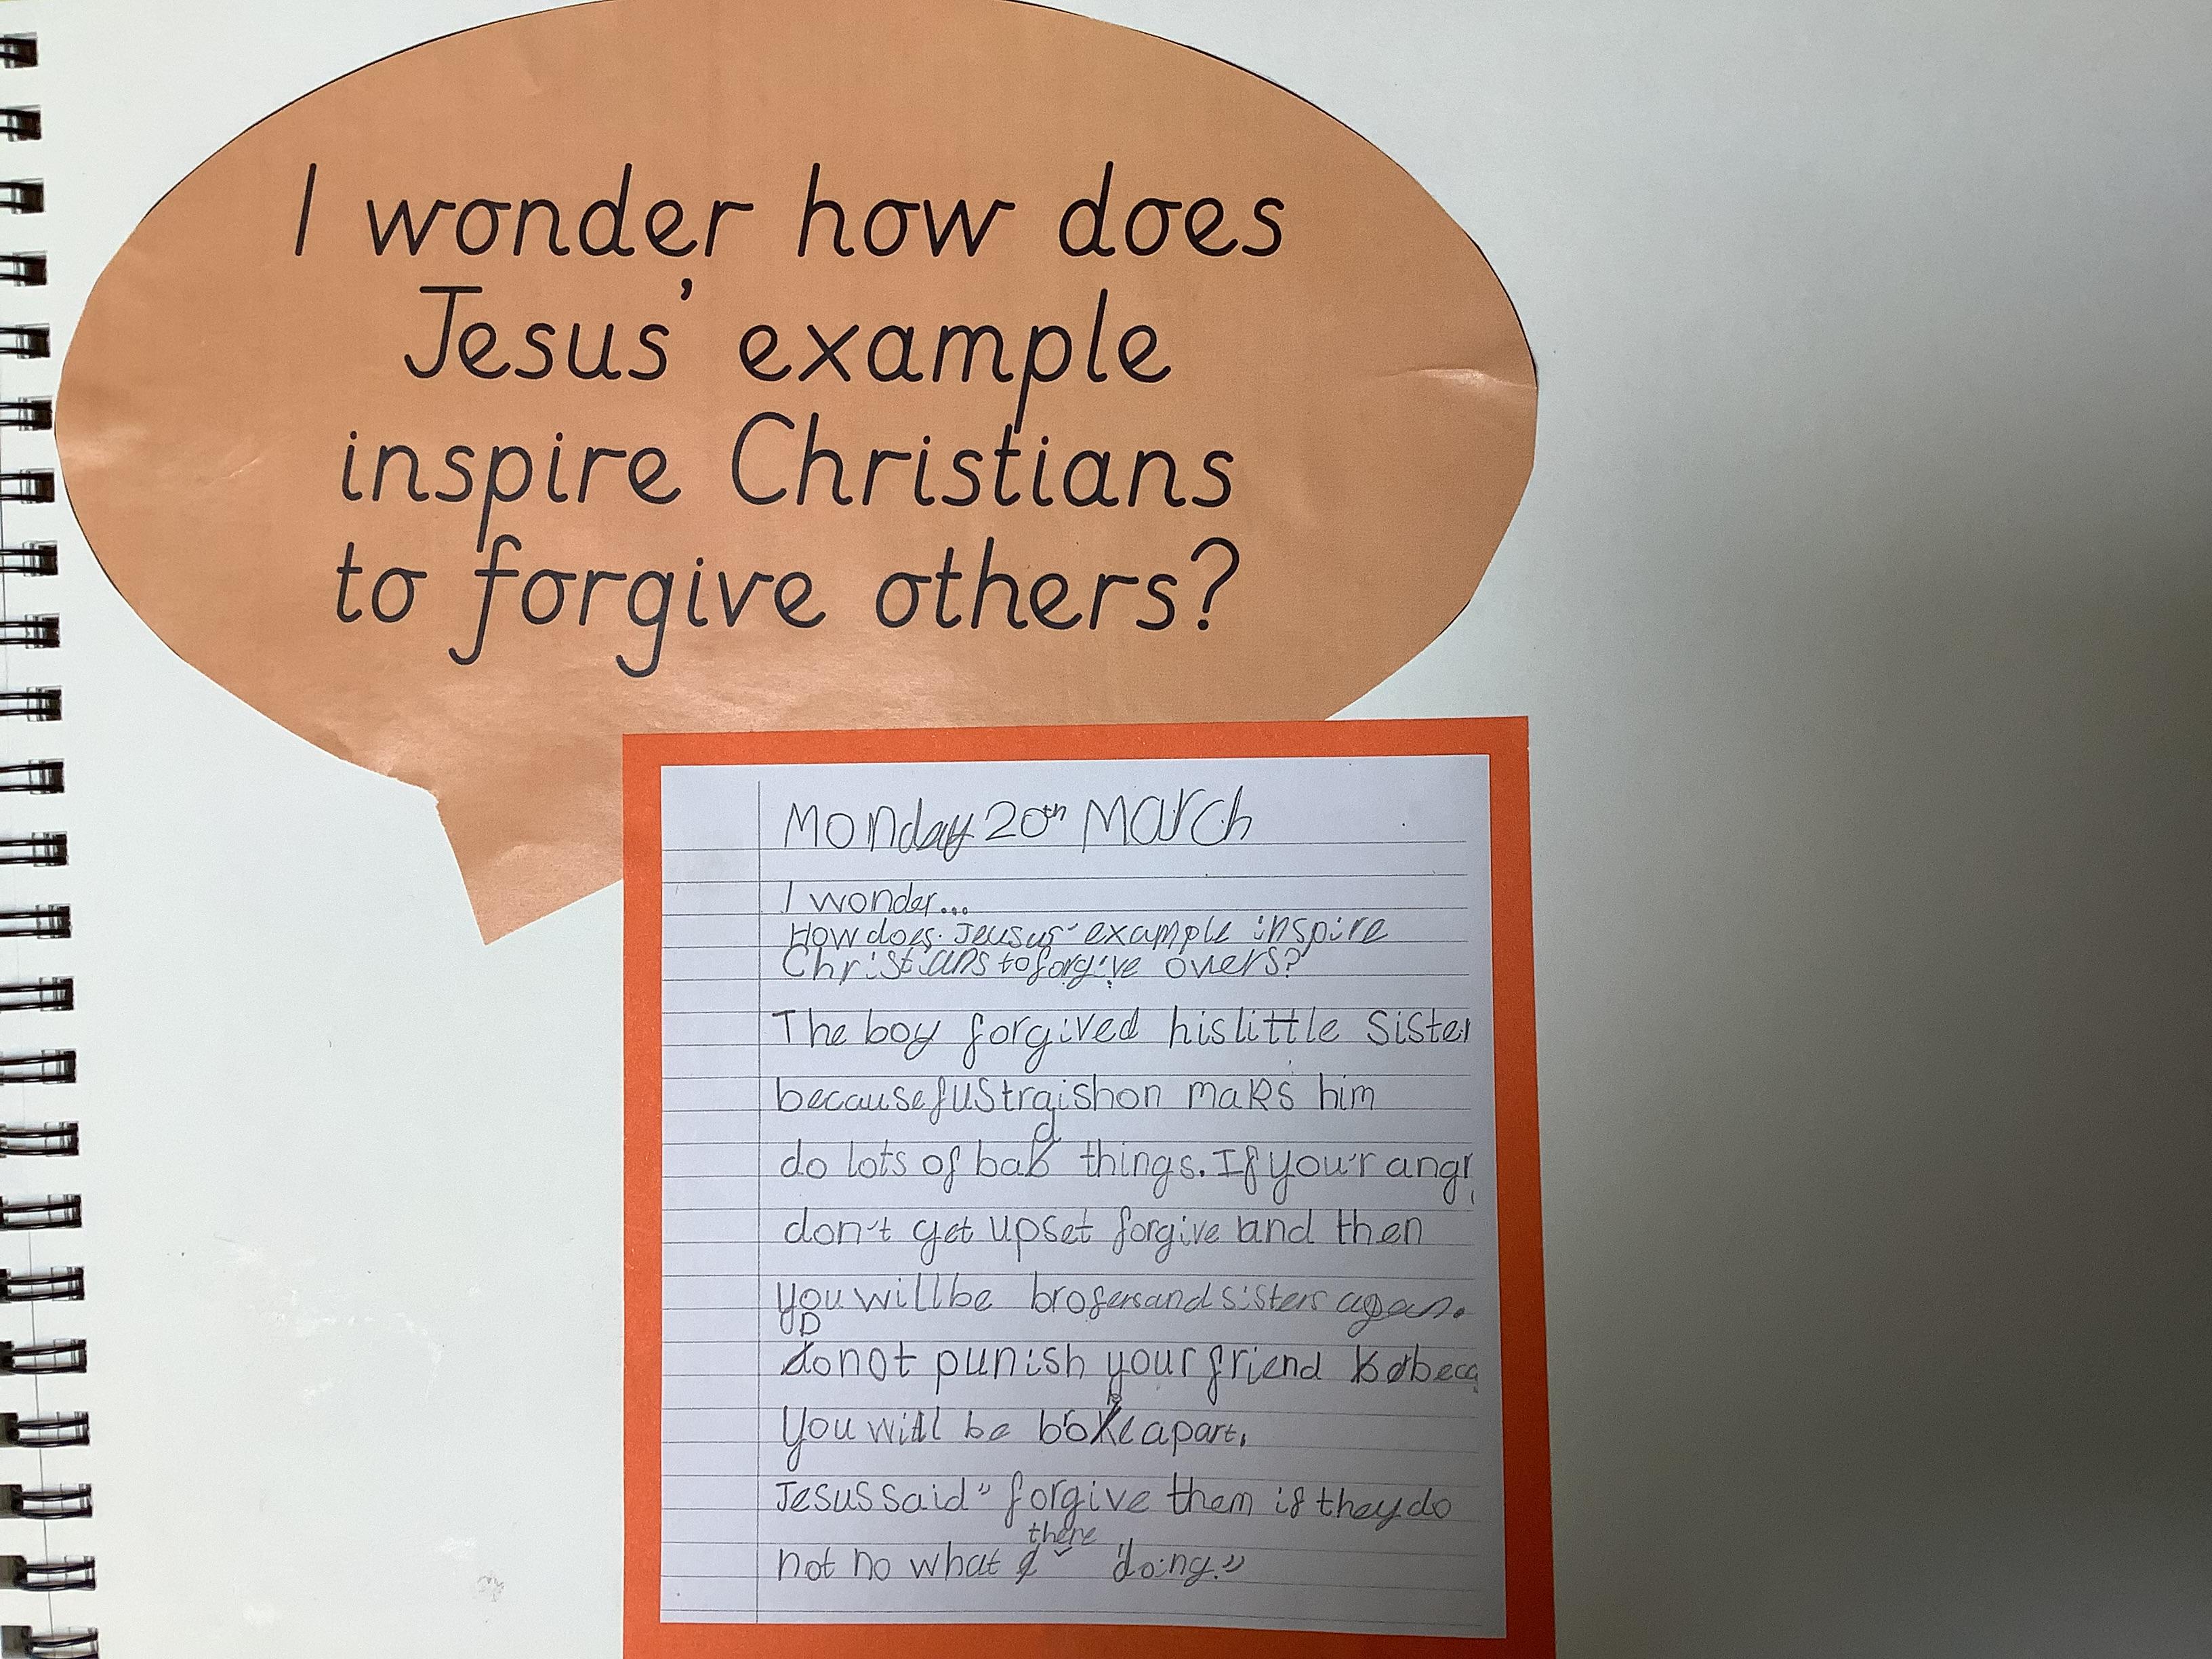 I wonder how does
Jesus' example
inspire Christians
to forgive others?
Monday 20th March
I wonder...
How does Jeusus' example inspire
Christians to forgive overs?
The boy forgived his little Sister
because fustraishon maks him
do lots of bad things. If you'r angr
don't get upset forgive and then
you will be brofers and sisters agean.
Do not punish your friend beca
you will be broke apart.
Jesus said" forgive them if they do
not no what there doing."